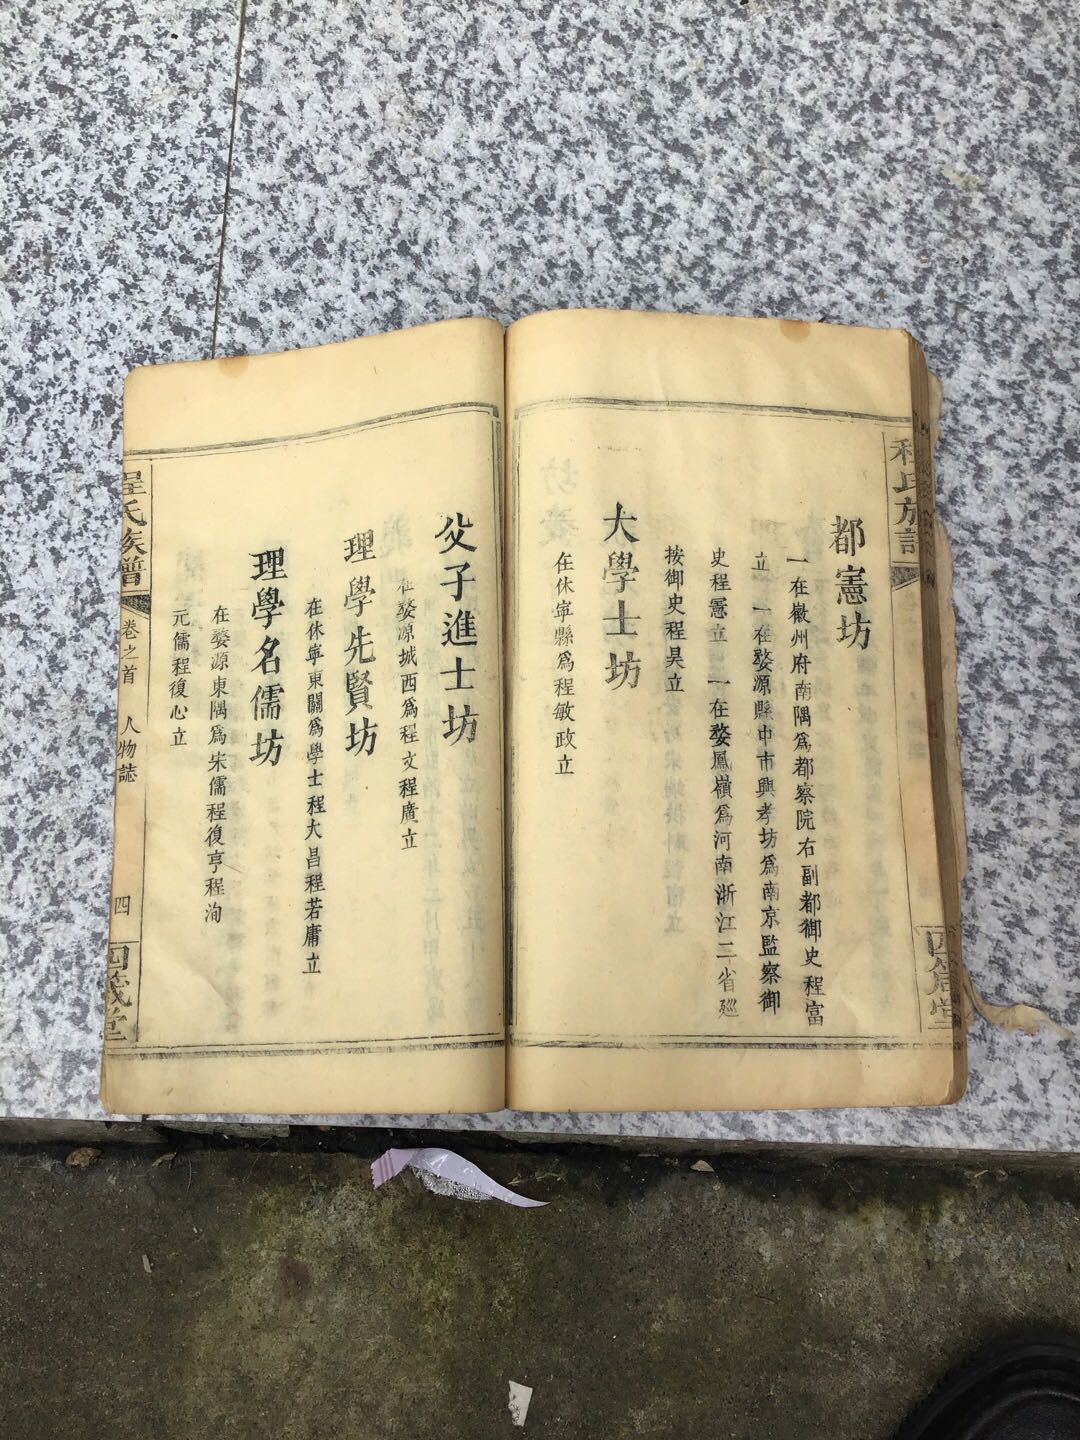 都憲坊
一在徽州府南隅爲都察院右副都御史程富
立 一在婺源縣中市興孝坊爲南京監察御
史程憲立 一在婺鳳嶺爲河南浙江二省廵
按御史程昊立
大學士坊
在休寧縣爲程敏政立
父子進士坊
在婺源城西爲程文程廣立
理學先賢坊
在休寧東關爲學士程大昌程若庸立
理學名儒坊
在婺源東隅爲宋儒程復亨程洵
元儒程復心立
程氏族譜
卷之首
人物誌
四